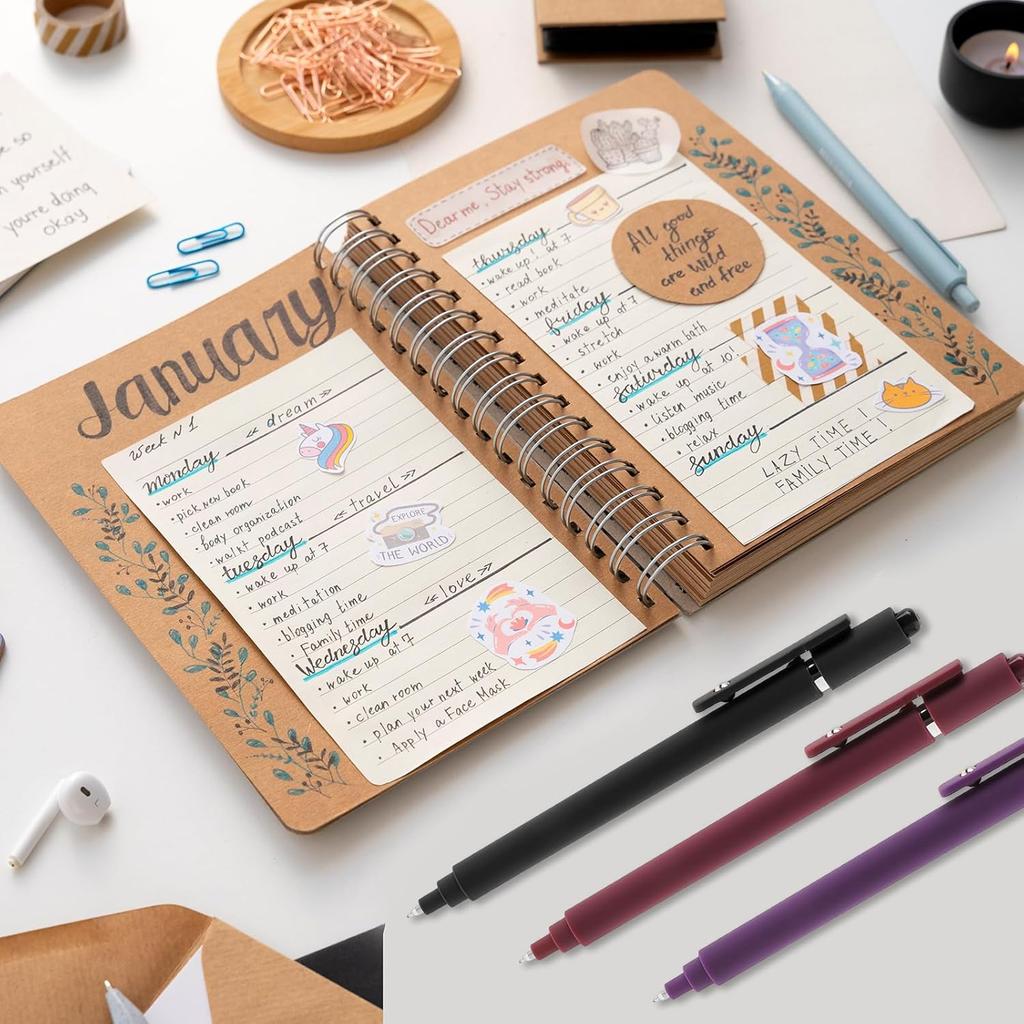 e so
n yourself
you're doing
okay
January
Week N 1
dream
monday
• work
• pick new book
• clean room
• body organization
• walkt podcast
travel
EXPLORE
THE WORLD
tuesday
• wake up at 7
• work
• meditation
• blogging time
• Family time
love
Wednesday
• wake up at 7
• work
• clean room
• plan your next week
• Apply a Face Mask
Dear me, Stay strong.
thursday
• wake up! at 7
• read book
• work
• meditate
All good
things
are wild
and free
friday
• wake up at 7
• stretch
• work
• enjoy a warm bath
saturday
• wake up at 10!
• listen music
• blogging time
• relax
sunday
LAZY TIME!
FAMILY TIME!